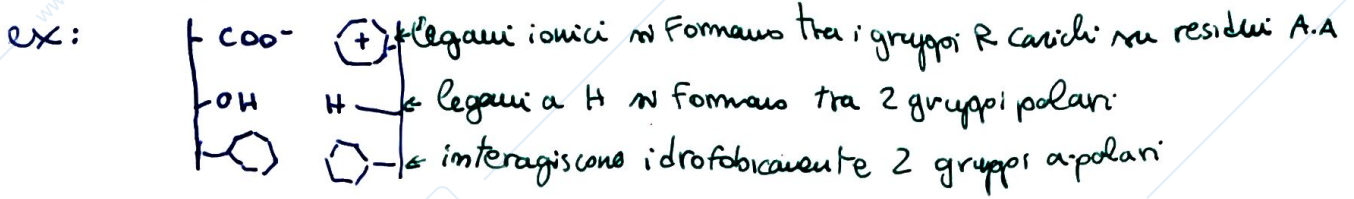 ex: COO⁻ + legami ionici si Formano tra i gruppi R carichi su residui A.A
OH H legami a H si formano tra 2 gruppi polari
interagiscono idrofobicamente 2 gruppi a-polari